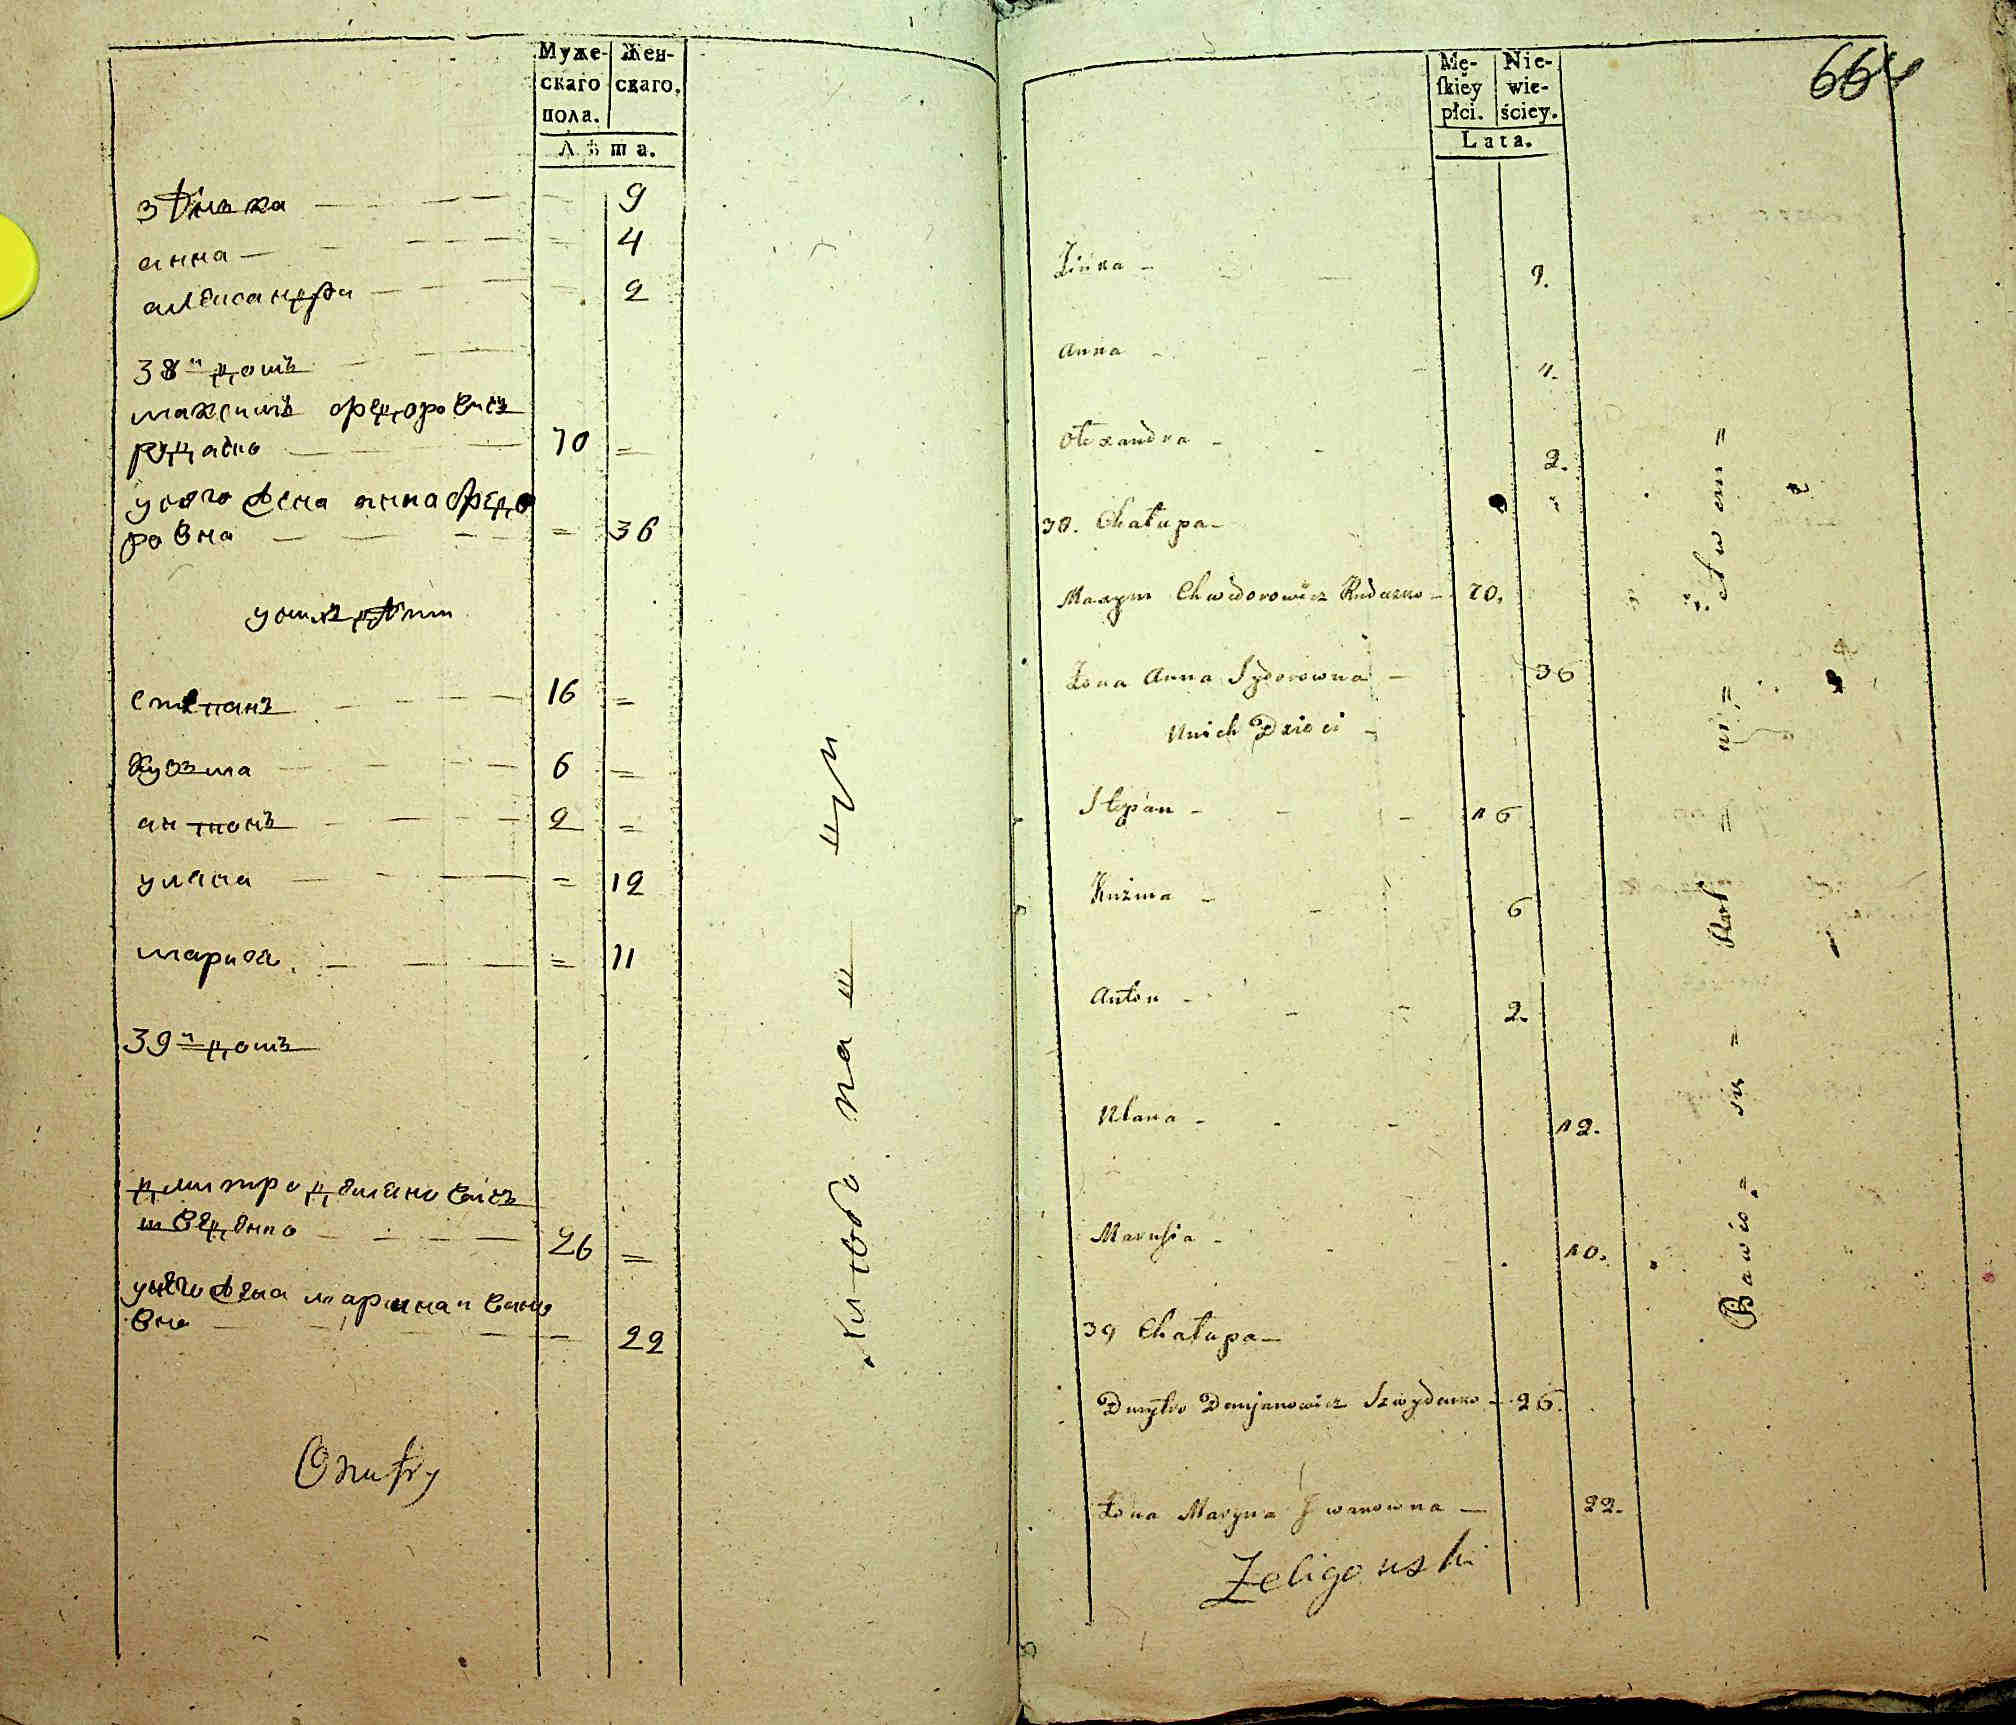 Муже- Жен-
скаго скаго.
пола.
Лѣта.
зѣнька 9
анна 4
александра 2
38й домъ
максимъ федоровичъ
рудько 70 =
у него жена анна федо
ровна = 36
у оныхъ дѣти
степанъ 16 =
кузма 6 =
антонъ 2 =
уляна = 12
маруся = 11
39й домъ
дмитро демяновичъ
шведенко 26 =
у него жена марина ивано
вна 22
Onufry
664
Mę- Nie-
ſkiey wie-
płci. ściey.
Lata.
Zińka 9.
Anna 4.
Olexandra 2.
38. Chałupa
Maxym Chwedorowicz Rudczko 70.
Żona Anna Sydorowna 36
U nich Dzieci
Stepan 16
Kuźma 6
Anton 2.
Ulana 12.
Marusia 10.
39 Chałupa
Dmytro Demjanowicz Szwydenko 26.
Żona Maryna Iwanowna 22.
Żeligowski